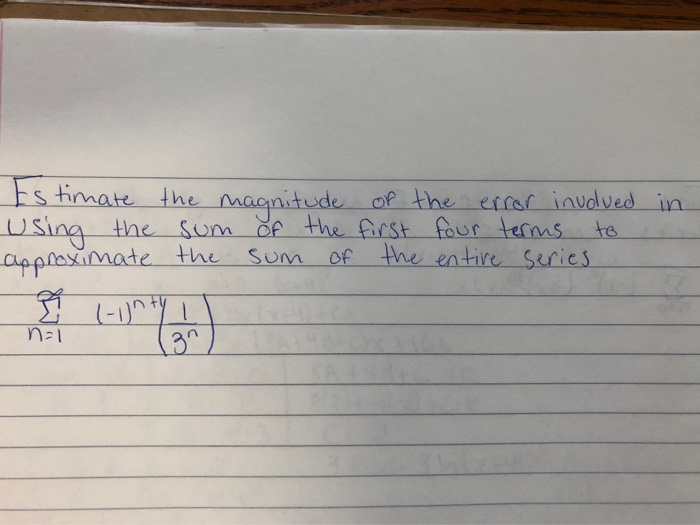 Estimate the magnitude of the error involved in
using the sum of the first four terms to
approximate the sum of the entire series
∞
Σ (-1)^{n+1} (1/3^n)
n=1